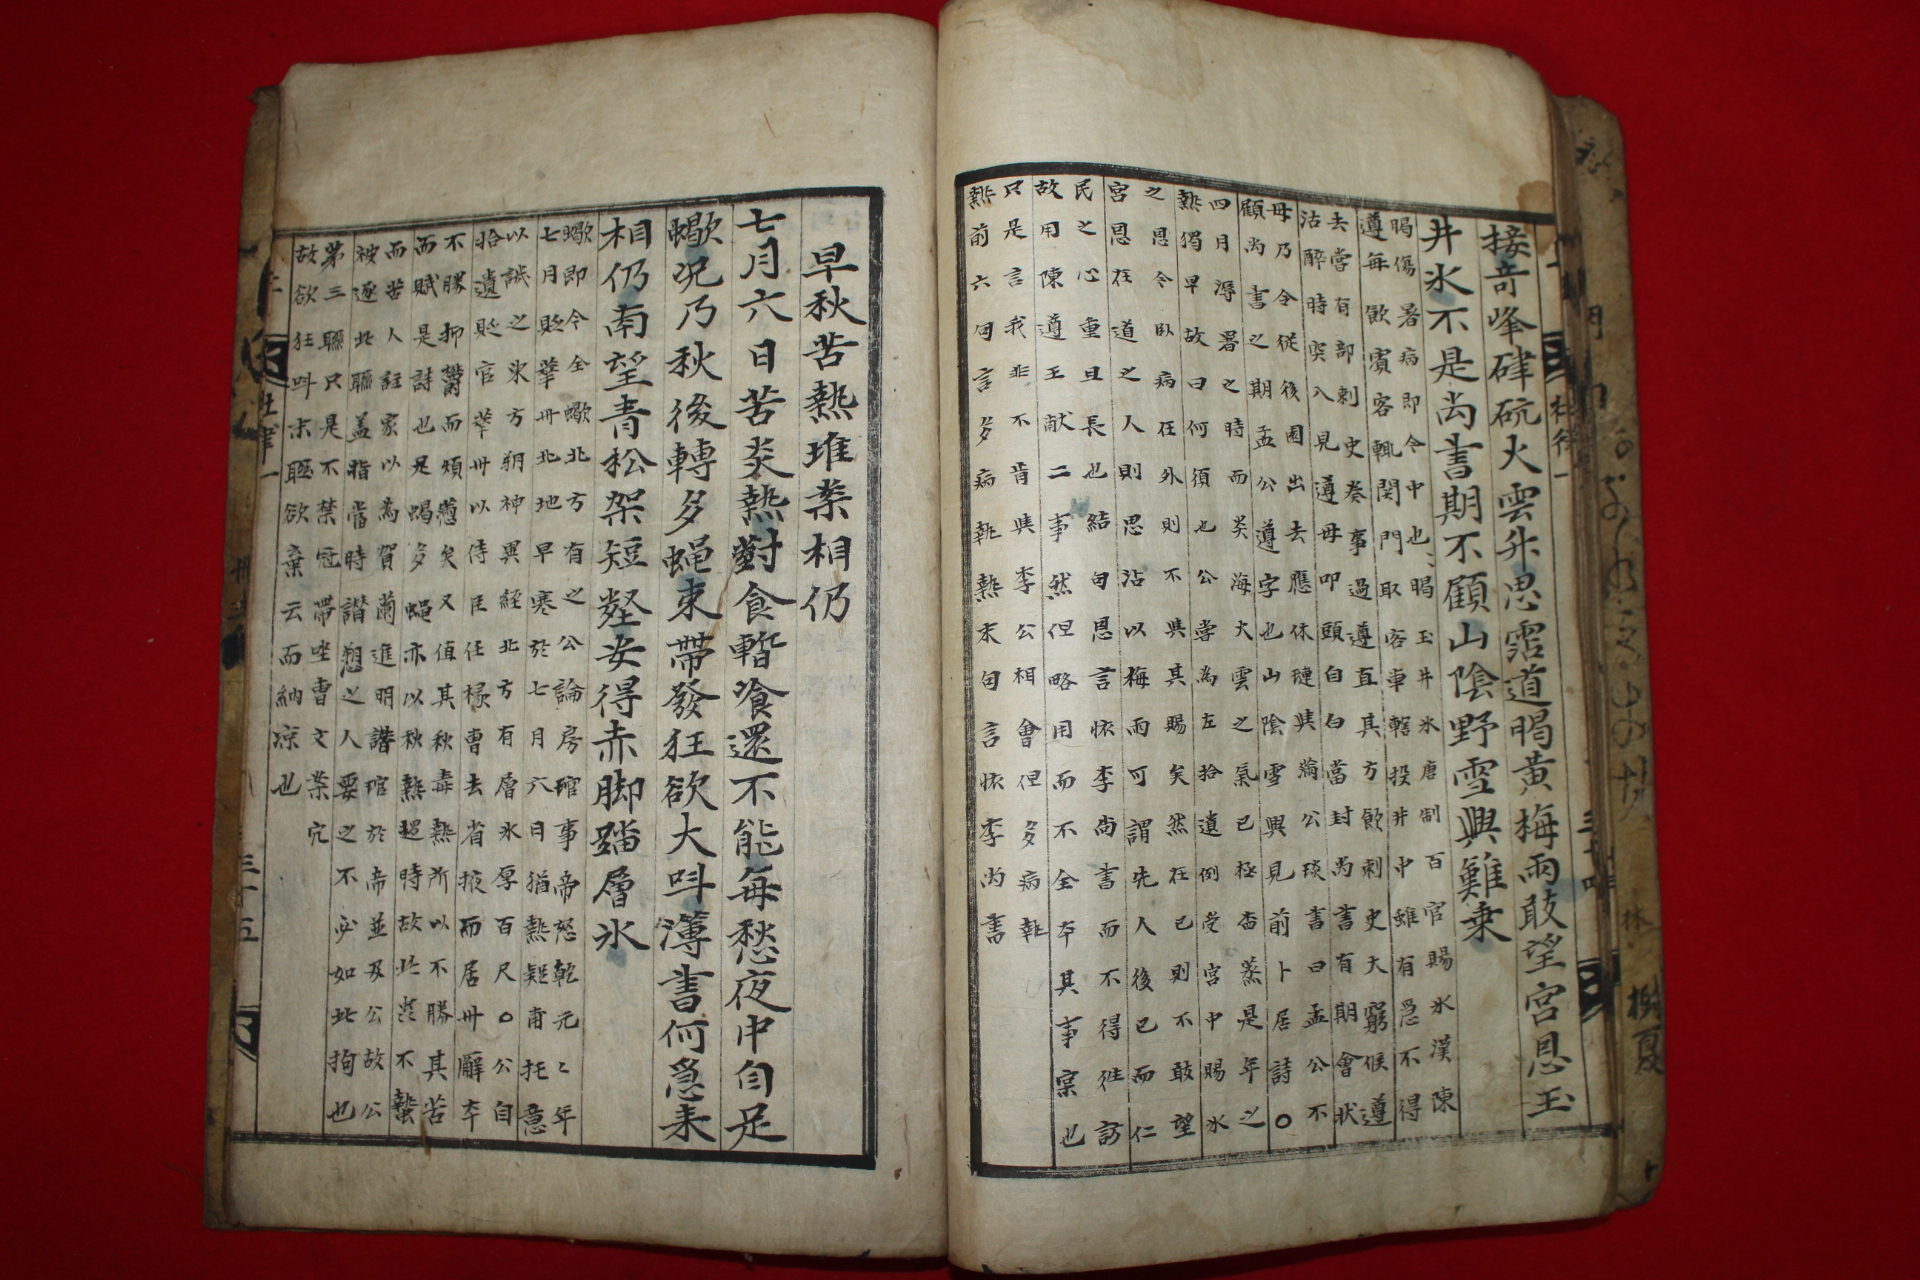 接奇峰硉矹火雲升思霑道暍黃梅雨敢望宮恩玉
井氷不是尚書期不顧山陰野雪興難乗
暍傷暑病即令中也暍玉井氷唐制百官賜氷漢陳
遵每飲賓客輒関門取客車轄投井中雖有急不得
去甞有部刺史奏事過遵直其方飲刺史大窮候遵
沾醉時突入見遵母叩頭自白當封尚書有期會状
母乃令従後囤出去應休璉與滿公琰書曰孟公不
顧尚書之期孟公遵字也山陰雪興見前卜居詩○
四月溽暑之時而炎海火雲之氣已極蒸是年之
熱獨早故曰何須也公甞為左拾遺倒受宮中賜氷
之恩今卧病在外則不與其賜矣然在已則不敢望
宮恩在道之人則思沾以梅雨可謂先人後已而仁
民之心重且長也結句恩言恢李尚書而不得徃訪
故用陳遵王献二事然但略用而不全夲其事宲也
只是言我非不肯與李公相會但多病執
熱前六句言多病執熱末句言恢李尚書
早秋苦熱堆案相仍
七月六日苦炎熱對食暫飡還不能每愁夜中自足
蠍况乃秋後轉多蝇束帶發狂欲大呌薄書何急来
相仍南望青松架短壑安得赤脚踏層氷
蠍即令全蠍北方有之公論房琯事帝怒乾元二年
七月貶華州北地早寒於七月六日猶熱疑甫托意
以誤之東方朔神異經北方有層氷厚百尺○公自
拾遺貶官華州以侍臣任椽曹去省掖而居州廨夲
不勝抑欝而煩懣矣又值其秋毒熱所以不勝其苦
而賦是詩也况蝎多蝇亦以秋熱超時故北᠎不蟄
而苦人註家以為賀蘭進明譖琯於帝並及公故公
被逐北聮盖指當時譖愬之人要之不必如此拘也
第三聮只是不禁冠帶坐曹文案冗
故欲狂呌末聮欲棄云而納凉也
杜律一
三十五